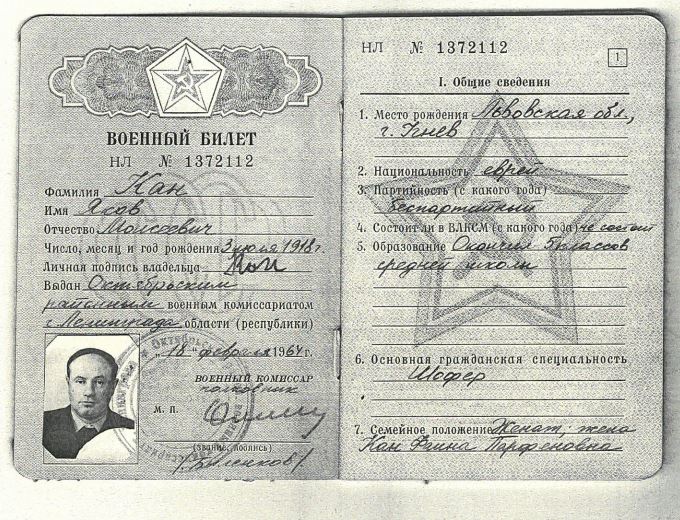 ВОЕННЫЙ БИЛЕТ
НЛ № 1372112
Фамилия Кан
Имя Яков
Отчество Моисеевич
Число, месяц и год рождения 3 июля 1918 г.
Личная подпись владельца Кан
Выдан Октябрьским
районным военным комиссариатом
г. Ленинграда области (республики)
"18" февраля 1964 г.
ВОЕННЫЙ КОМИССАР
полковник
М. П.
(звание, подпись)
НЛ № 1372112
1
I. Общие сведения
1. Место рождения Львовская обл.,
г. Угнев
2. Национальность еврей
3. Партийность (с какого года)
беспартийный
4. Состоит ли в ВЛКСМ (с какого года) не состоит
5. Образование Окончил классов
средней школы
6. Основная гражданская специальность
Шофер
7. Семейное положение Женат, жена
Кан Парфеновна